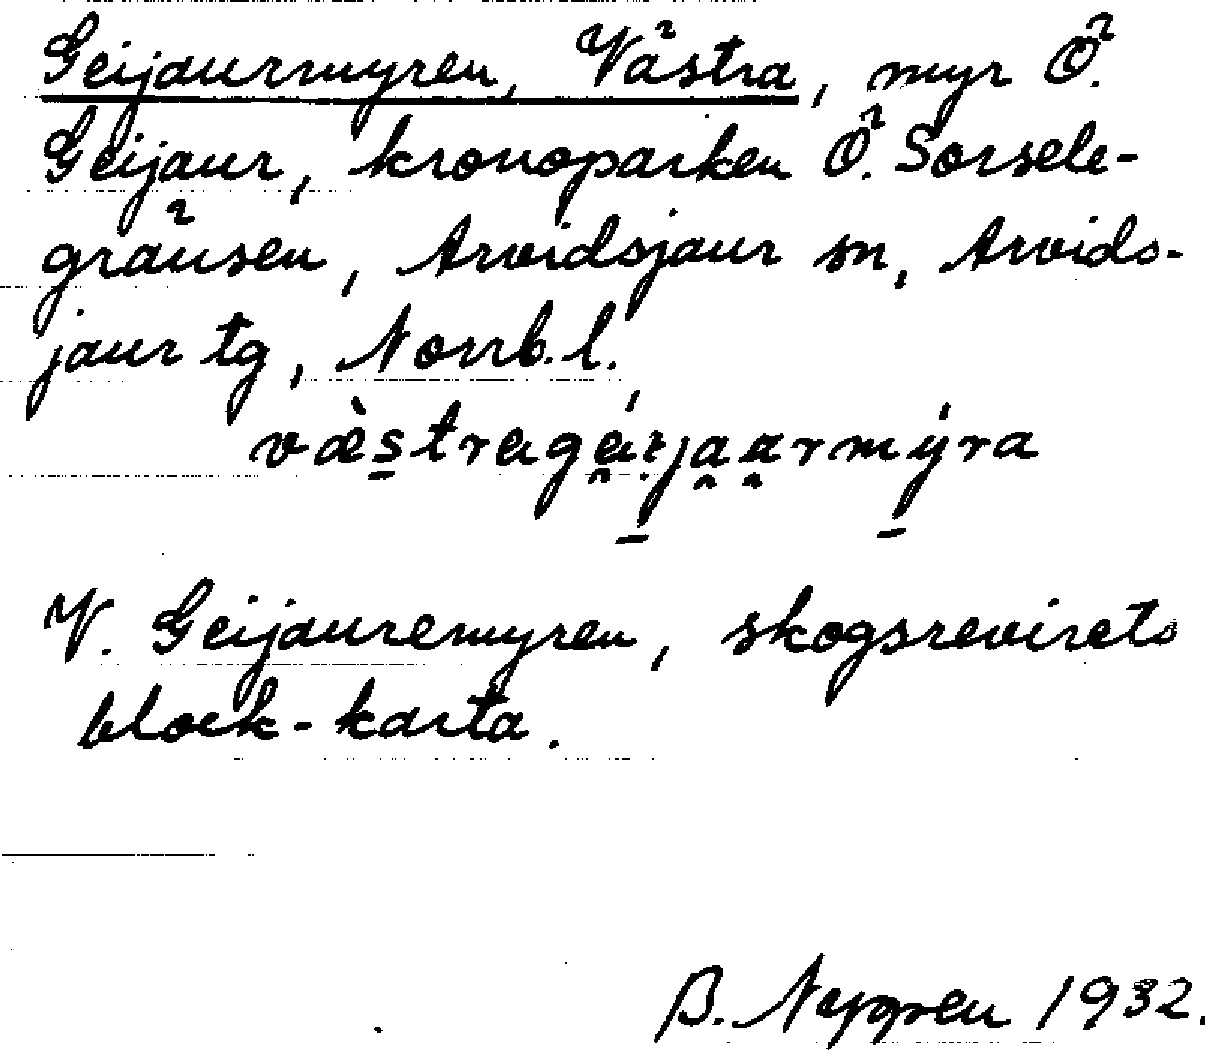 Geijaurmyren, Västra, myr Ö.
Geijaur, kronoparken Ö. Sorsele-
gränsen, Arvidsjaur sn, Arvids-
jaur tg, Norrb. l.
V. Geijauremyren, skogsrevirets
block-karta.
B. Nygren 1932.